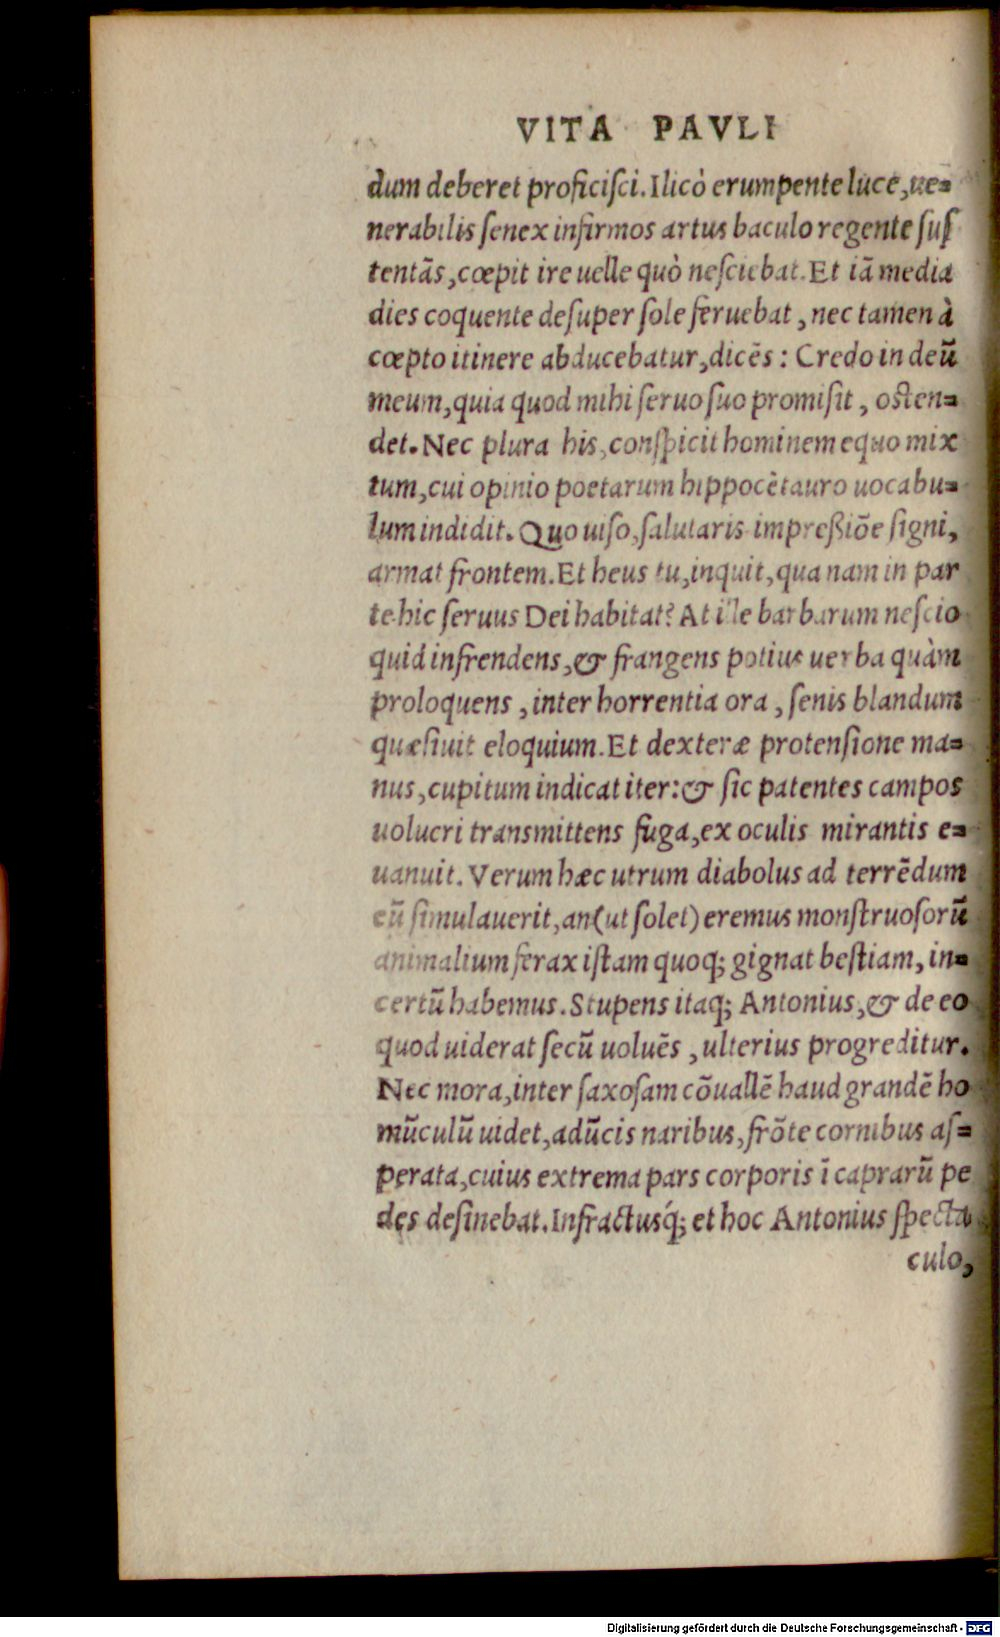 VITA PAVLI
dum deberet proficiſci. Ilicò erumpente luce, ue=
nerabilis ſenex infirmos artus baculo regente ſuſ
tentãs, cœpit ire uelle quò neſciebat. Et iã media
dies coquente deſuper ſole feruebat, nec tamen à
cœpto itinere abducebatur, dicẽs: Credo in deũ
meum, quia quod mihi ſeruo ſuo promiſit, oſten=
det. Nec plura his, conſpicit hominem equo mix
tum, cui opinio poetarum hippocẽtauro uocabu=
lum indidit. Quo uiſo, ſalutaris impreßiõe ſigni,
armat frontem. Et heus tu, inquit, qua nam in par
te hic ſeruus Dei habitat? At ille barbarum neſcio
quid infrendens, & frangens potius uerba quàm
proloquens, inter horrentia ora, ſenis blandum
quæſiuit eloquium. Et dexteræ protenſione ma=
nus, cupitum indicat iter: & ſic patentes campos
uolucri transmittens fuga, ex oculis mirantis e=
uanuit. Verum hæc utrum diabolus ad terrẽdum
eũ ſimulauerit, an (ut ſolet) eremus monſtruoſorũ
animalium ferax iſtam quoq; gignat beſtiam, in=
certũ habemus. Stupens itaq; Antonius, & de eo
quod uiderat ſecũ uoluẽs, ulterius progreditur.
Nec mora, inter ſaxoſam cõuallẽ haud grandẽ ho
mũculũ uidet, adũcis naribus, frõte cornibus aſ=
perata, cuius extrema pars corporis ĩ caprarũ pe
des deſinebat. Infractusq́; et hoc Antonius ſpecta
culo,
Digitalisierung gefördert durch die Deutsche Forschungsgemeinschaft - DFG